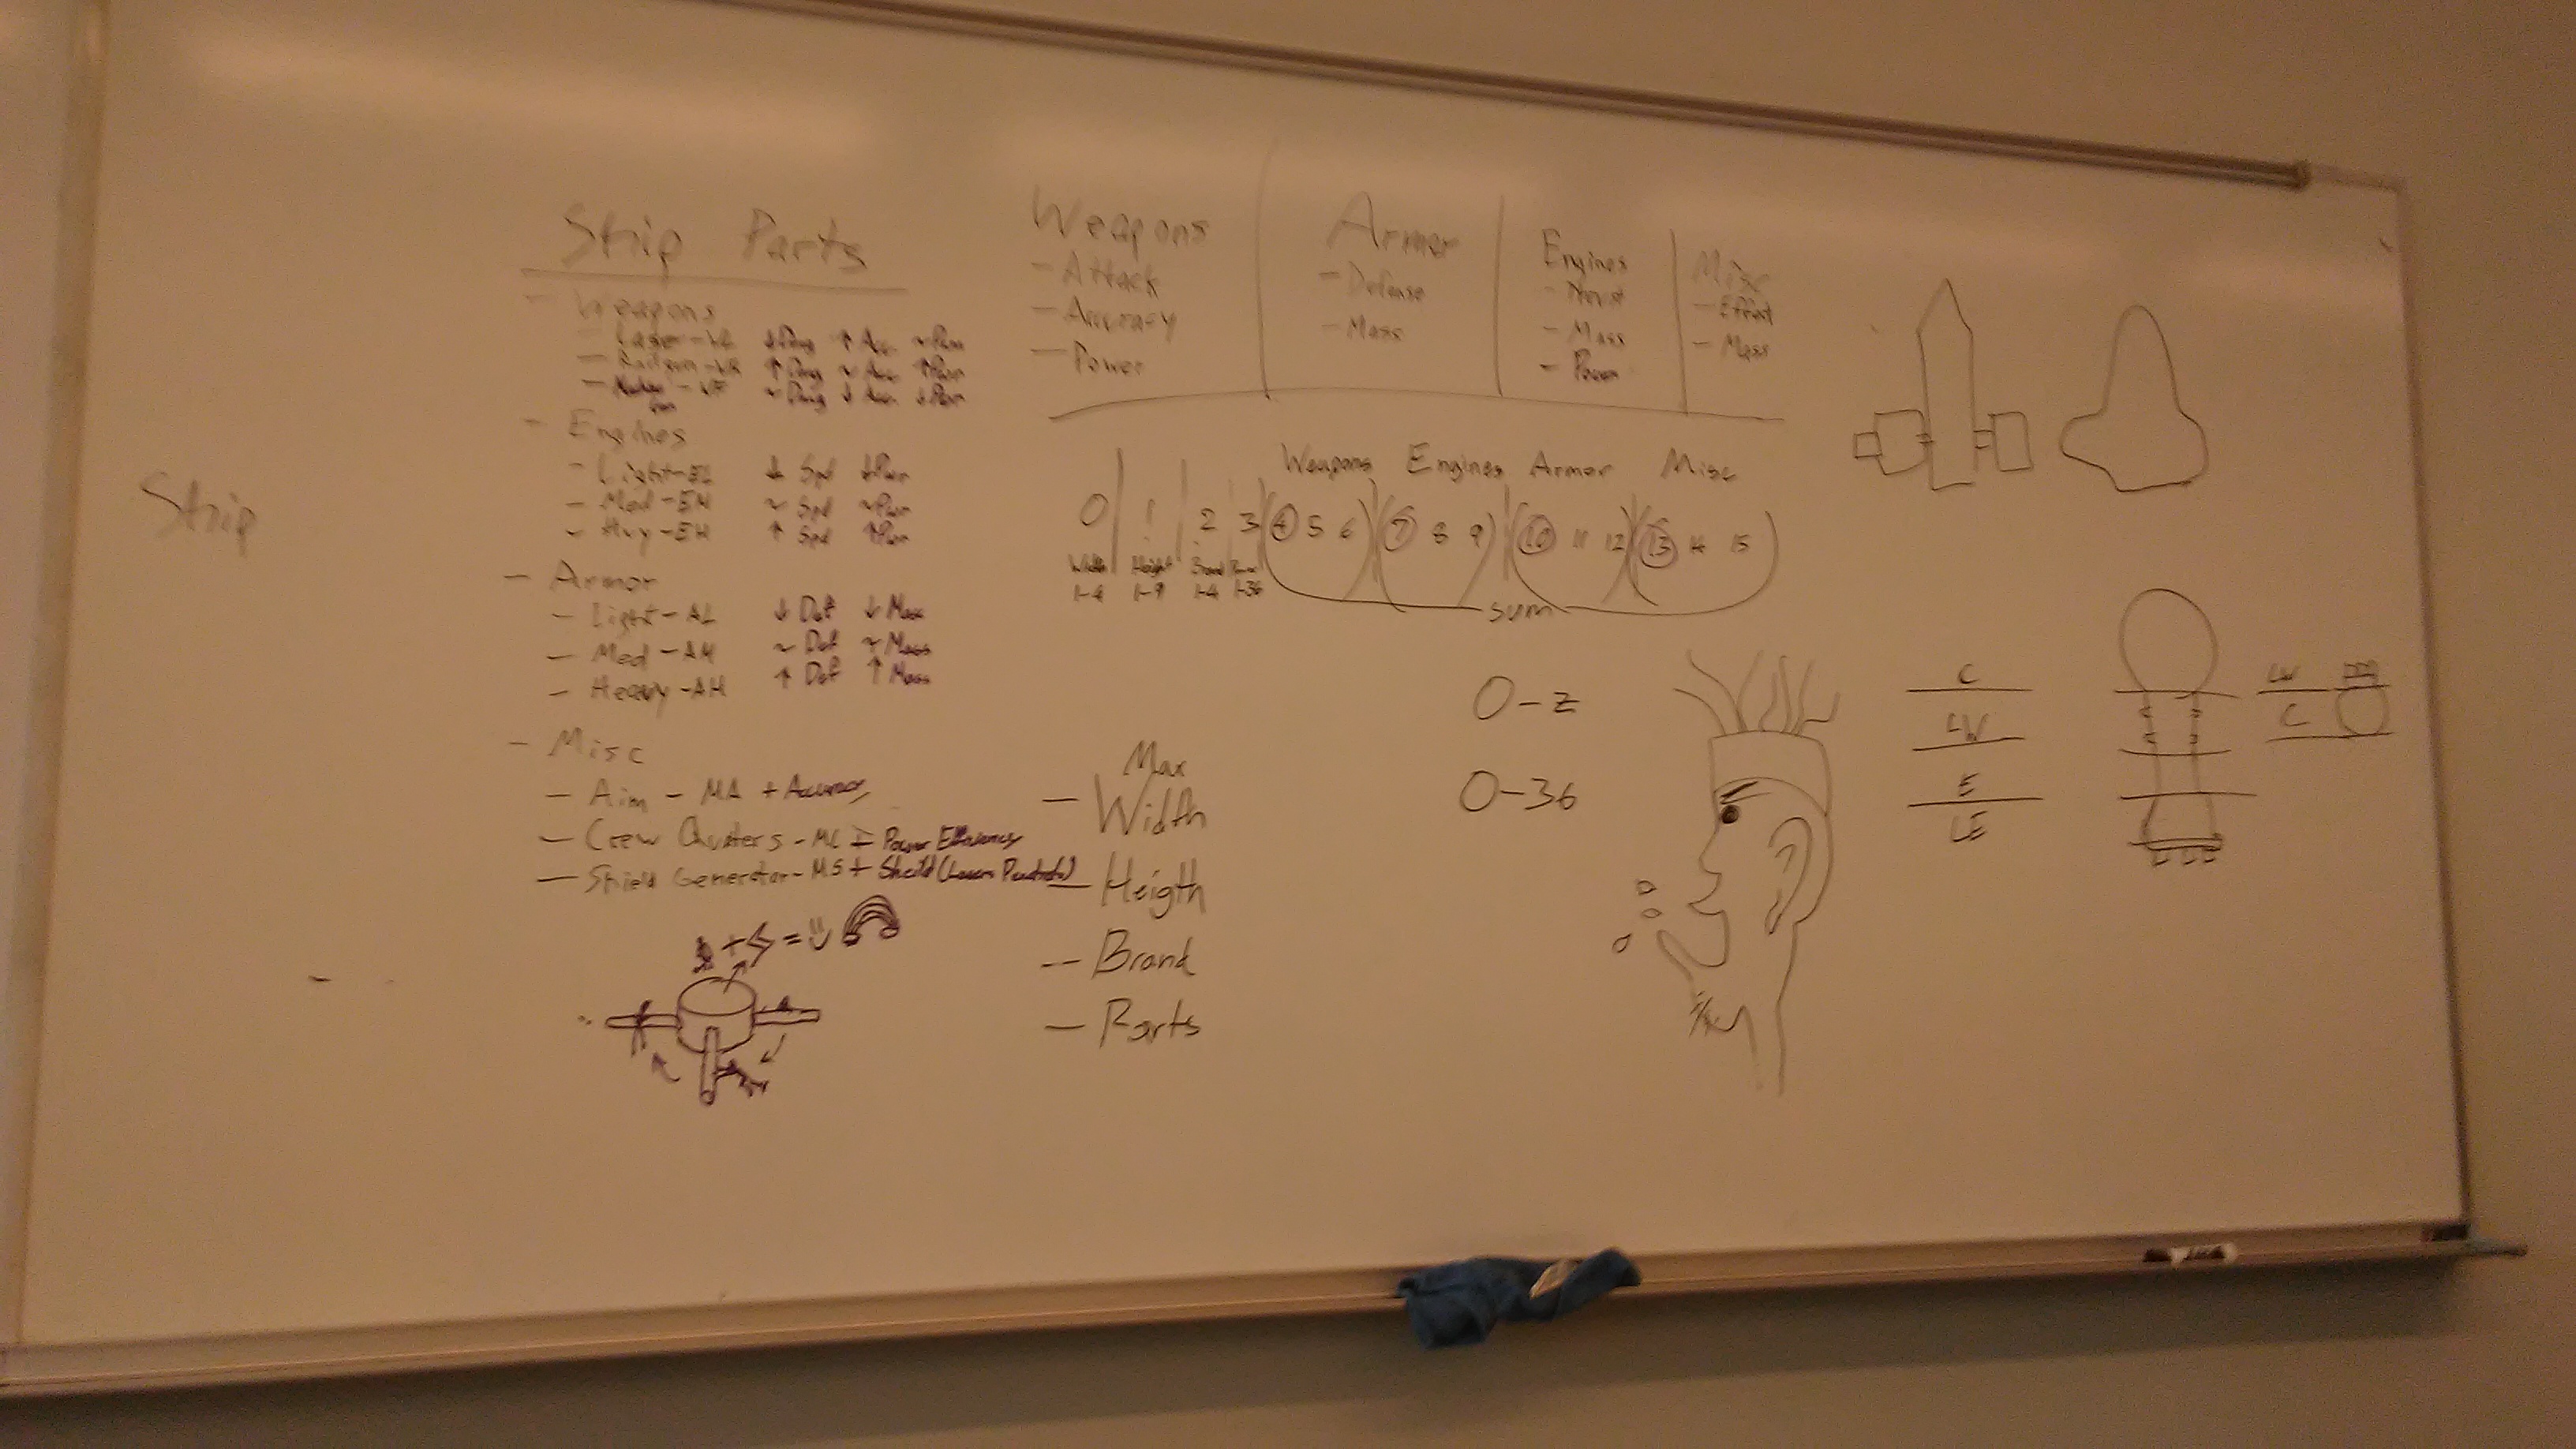 Strip
Strip Parts
- Weapons
- Laser - WL ↓ Dmg ↑ Acc ~ Pwr
- Railgun - WR ↑ Dmg ~ Acc ↑ Pwr
~ Dmg ↓ Acc ↓ Pwr
- Engines
- Light - EL ↓ Spd ↓ Pwr
- Med - EM ~ Spd ~ Pwr
- Hvy - EH ↑ Spd ↑ Pwr
- Armor
- Light - AL ↓ Def ↓ Mass
- Med - AM ~ Def ~ Mass
- Heavy - AH ↑ Def ↑ Mass
- Misc
- Aim - MA + Accuracy
- Crew Quaters - MC + Power Efficiency
- Shield Generator - MS + Sheild (Lasers Penetrate)
Weapons
- Attack
- Accuracy
- Power
Armor
- Defense
- Mass
Engines
- Thrust
- Mass
- Power
Misc
- Effect
- Mass
Weapons Engines Armor Misc
0 1 2 3 4 5 6 7 8 9 10 11 12 13 14 15
Width Height Brand
1-9 1-4 1-36
sum
Max
- Width
- Heigth
- Brand
- Parts
0-z
0-36
C
LW
E
LE
LW
C